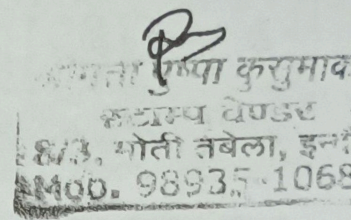 पुष्पा कुसुमाक
स्टाम्प वेण्डर
8/3, मोती तबेला, इन्दौ
Mob. 98935 1068